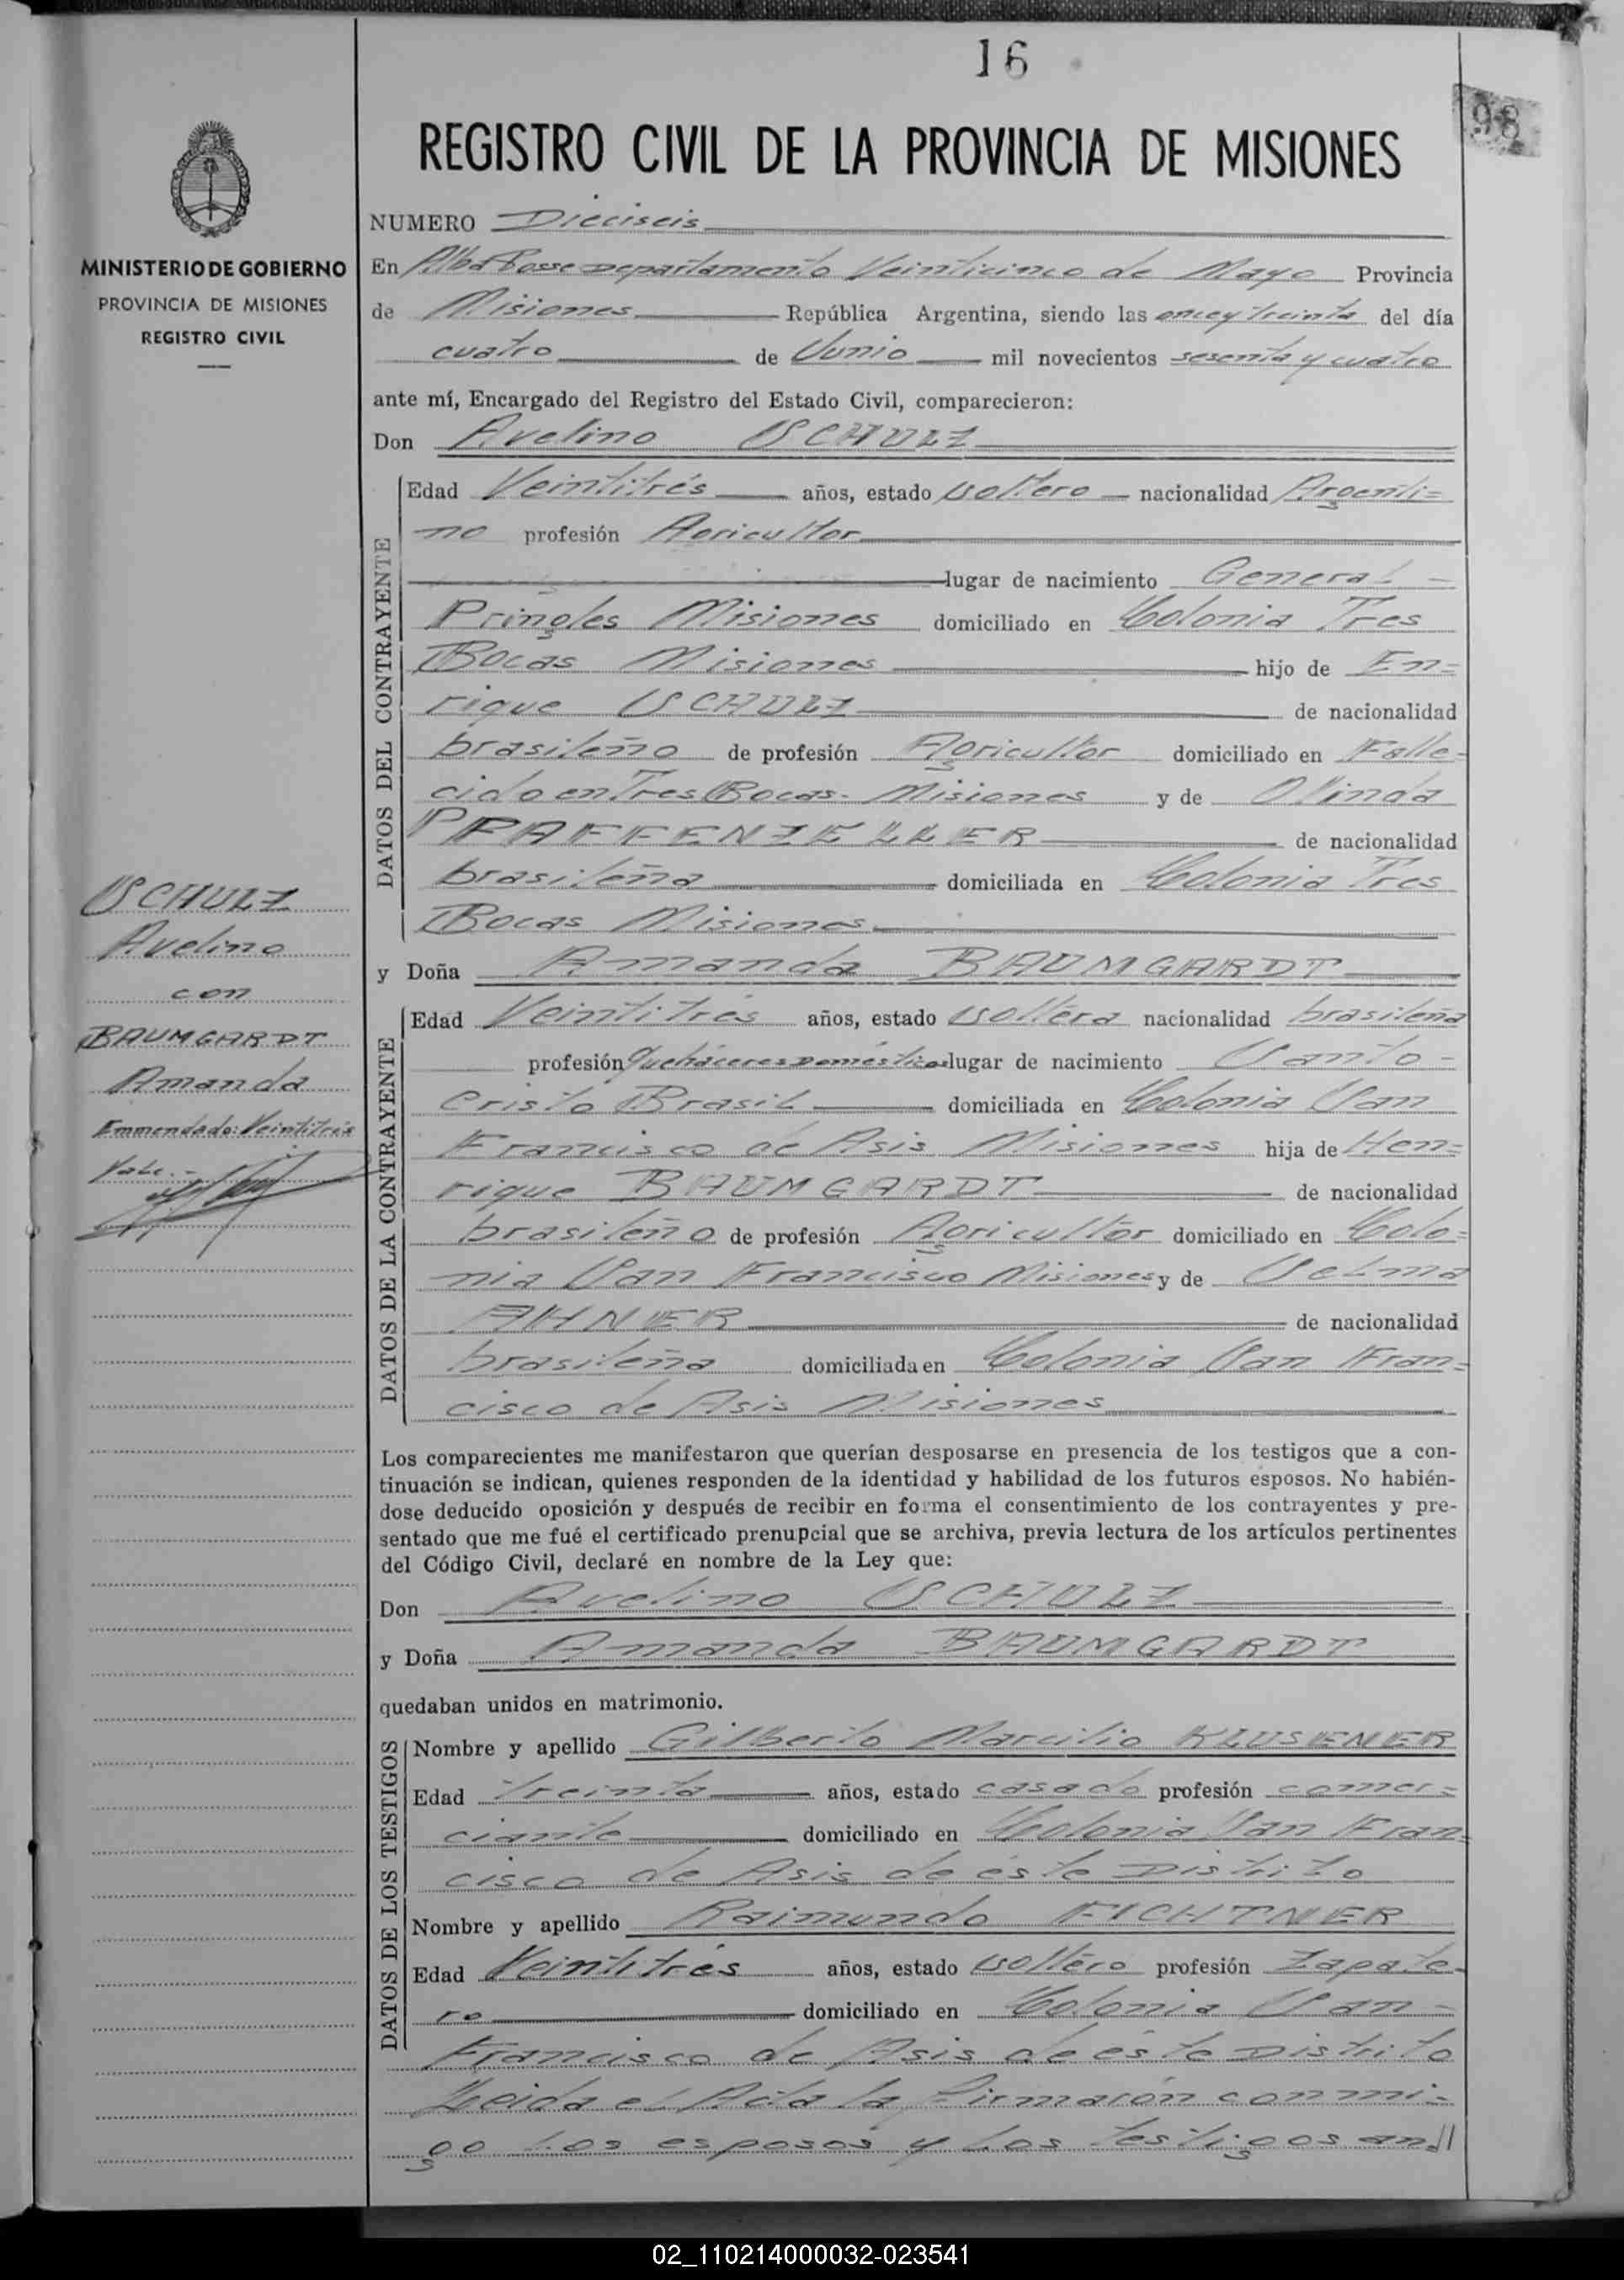 16
98
REGISTRO CIVIL DE LA PROVINCIA DE MISIONES
MINISTERIO DE GOBIERNO
PROVINCIA DE MISIONES
REGISTRO CIVIL
SCHULZ
Avelino
con
BAUMGARDT
Amanda
Emmendado: Veintitrés
Vale.-
NUMERO Dieciseis
En Alba Posse Departamento Veinticinco de Mayo Provincia
de Misiones República Argentina, siendo las once y treinta del día
cuatro de Junio mil novecientos sesenta y cuatro
ante mí, Encargado del Registro del Estado Civil, comparecieron:
Don Avelino SCHULZ
DATOS DEL CONTRAYENTE
Edad Veintitrés años, estado soltero nacionalidad Argenti=
no profesión Agricultor
lugar de nacimiento General -
Pringles Misiones domiciliado en Colonia Tres
Bocas Misiones hijo de En=
rique SCHULZ de nacionalidad
brasileño de profesión Agricultor domiciliado en Falle=
cido en Tres Bocas- Misiones y de Olinda
PFAFFENZELLER de nacionalidad
brasileña domiciliada en Colonia Tres
Bocas Misiones
y Doña Amanda BAUMGARDT
DATOS DE LA CONTRAYENTE
Edad Veintitrés años, estado soltera nacionalidad brasileña
profesión Quehaceres Domésticos lugar de nacimiento Santo -
Cristo Brasil domiciliada en Colonia San
Francisco de Asis Misiones hija de Hen=
rique BAUMGARDT de nacionalidad
brasileño de profesión Agricultor domiciliado en Colo=
nia San Francisco Misiones y de Selma
AHNER de nacionalidad
brasileña domiciliada en Colonia San Fran=
cisco de Asis Misiones
Los comparecientes me manifestaron que querían desposarse en presencia de los testigos que a con-
tinuación se indican, quienes responden de la identidad y habilidad de los futuros esposos. No habién-
dose deducido oposición y después de recibir en forma el consentimiento de los contrayentes y pre-
sentado que me fué el certificado prenupcial que se archiva, previa lectura de los artículos pertinentes
del Código Civil, declaré en nombre de la Ley que:
Don Avelino SCHULZ
y Doña Amanda BAUMGARDT
quedaban unidos en matrimonio.
DATOS DE LOS TESTIGOS
Nombre y apellido Gilberto Marcilio KLUSENER
Edad treinta años, estado casado profesión comer=
ciante domiciliado en Colonia San Fran=
cisco de Asis de éste Distrito
Nombre y apellido Raimundo FICHTNER
Edad Veintitrés años, estado soltero profesión Zapate-
ro domiciliado en Colonia San -
Francisco de Asis de éste Distrito
Leida el Acta la firmarón conmi=
go los esposos y los testigos an//
02_110214000032-023541